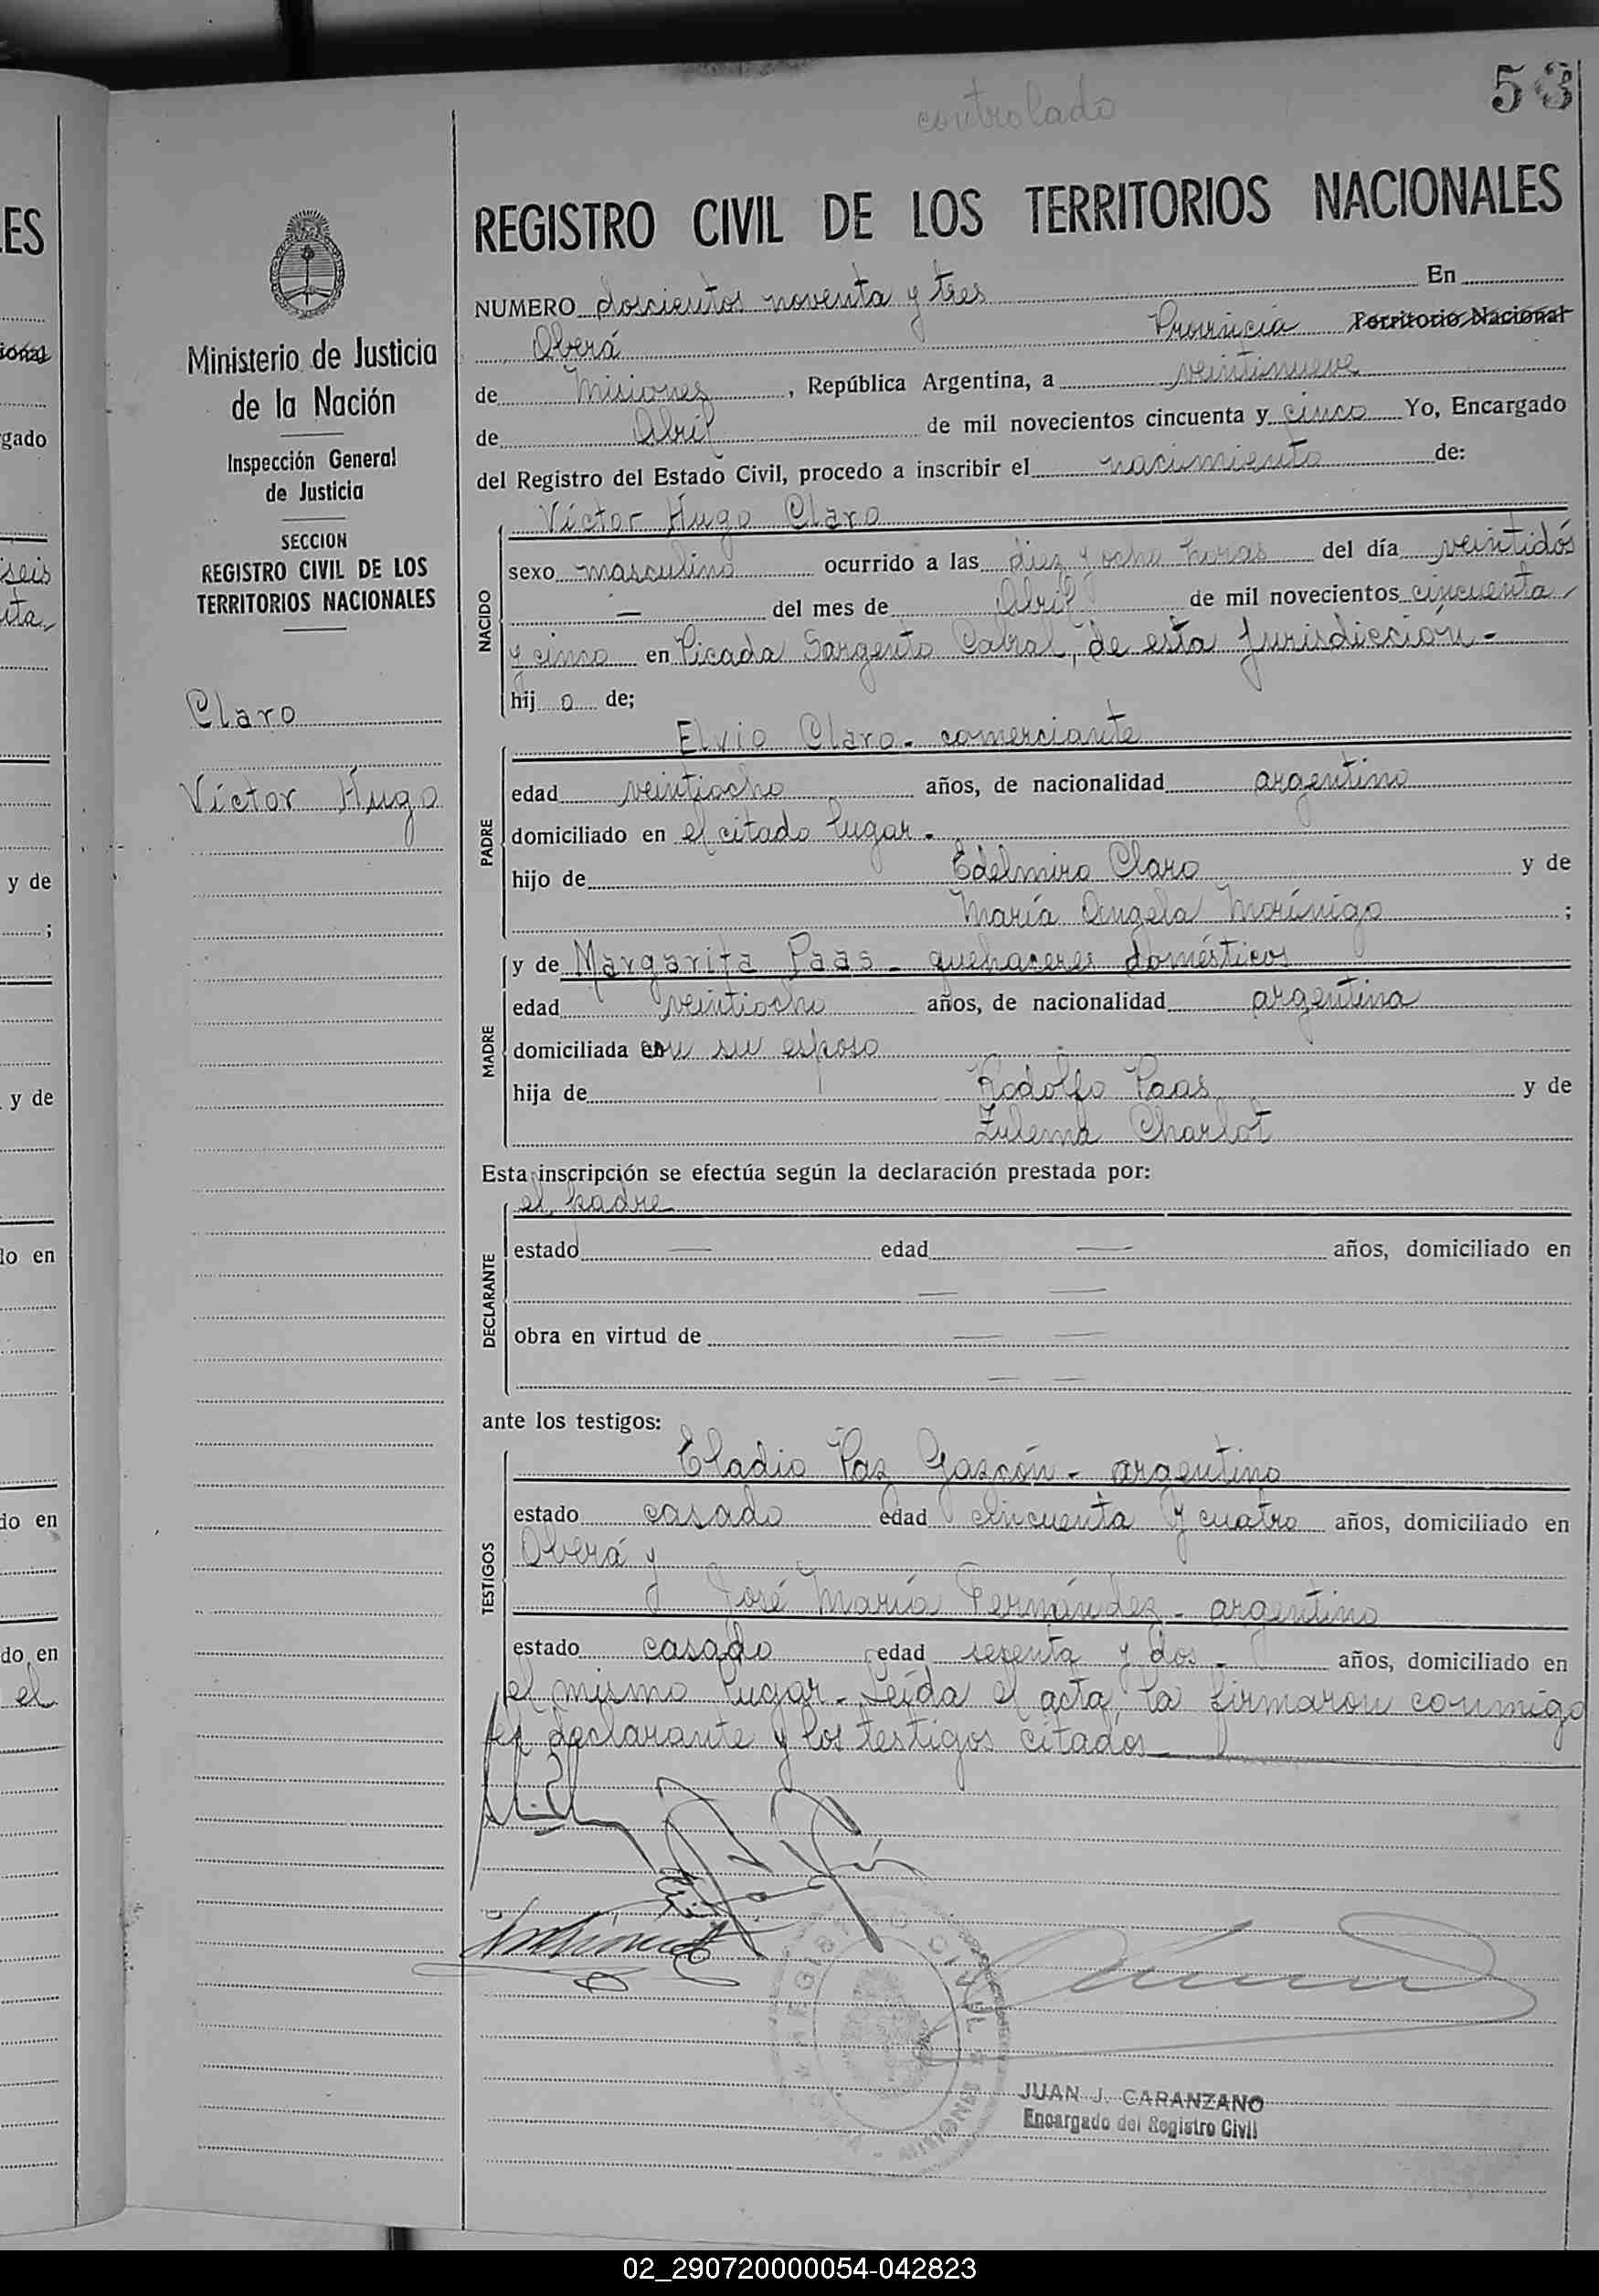 controlado
53
REGISTRO CIVIL DE LOS TERRITORIOS NACIONALES
NUMERO doscientos noventa y tres En
Oberá Provincia Territorio Nacional
de Misiones, República Argentina, a veintinueve
de Abril de mil novecientos cincuenta y cinco Yo, Encargado
del Registro del Estado Civil, procedo a inscribir el nacimiento de:
NACIDO
Víctor Hugo Claro
sexo masculino ocurrido a las diez y ocho horas del día veintidós
— del mes de Abril de mil novecientos cincuenta
y cinco en Picada Sargento Cabral, de esta Jurisdicción -
hij o de;
PADRE
Elvio Claro - comerciante
edad veintiocho años, de nacionalidad argentino
domiciliado en el citado lugar -
hijo de Edelmiro Claro y de
María Angela Morínigo ;
MADRE
y de Margarita Paas - quehaceres domésticos
edad veintiocho años, de nacionalidad argentina
domiciliada en su esposo
hija de Rodolfo Paas y de
Zulema Charlot
Esta inscripción se efectúa según la declaración prestada por:
DECLARANTE
el padre
estado — edad — años, domiciliado en
— —
obra en virtud de — —
— —
ante los testigos:
TESTIGOS
Eladio Paz Gascón - argentino
estado casado edad cincuenta y cuatro años, domiciliado en
Oberá y
José María Fernández - argentino
estado casado edad sesenta y dos - años, domiciliado en
el mismo lugar - Leída el acta, la firmaron conmigo
el declarante y los testigos citados
REGISTRO CIVIL
MISIONES
JUAN J. CARANZANO
Encargado del Registro Civil
Ministerio de Justicia
de la Nación
Inspección General
de Justicia
SECCION
REGISTRO CIVIL DE LOS
TERRITORIOS NACIONALES
Claro
Víctor Hugo
ES
ional
gado
seis
nta
y de
;
y de
lo en
do en
do en
el
02_290720000054-042823